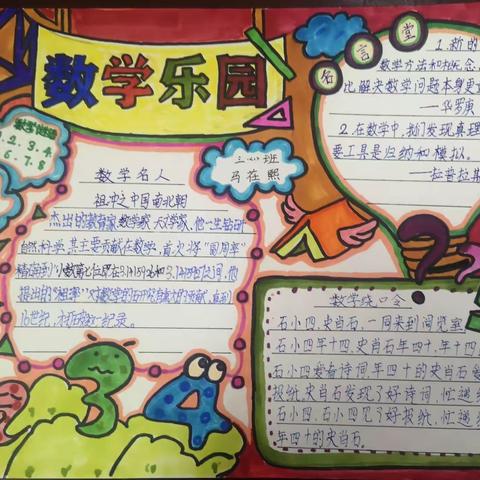 数学乐园
数学谜语
1.2.3.4.
6.7.8
三(4)班
马在熙
名言堂
1.新的
数学方法和概念,
比解决数学问题本身更重
——华罗庚
2.在数学中,我们发现真理
要工具是归纳和模拟。
——拉普拉斯
数学名人
祖冲之中国南北朝
杰出的教育家、数学家、天文学家、他一生钻研
自然科学,其主要贡献在数学、首次将"圆周率"
精确到小数第七位即在3.1415926和3.1415927之间,他
提出的"祖率"对数学的
16世纪,
纪录。
数学绕口令
石小四,史肖石,一同来到阅览室
石小四年十四,史肖石年四十,年十四
石小四爱看诗词,年四十的史肖石爱
报纸,史肖石发现了好诗词,忙递给
石小四,石小四见了好报纸,忙递给
年四十的史肖石。